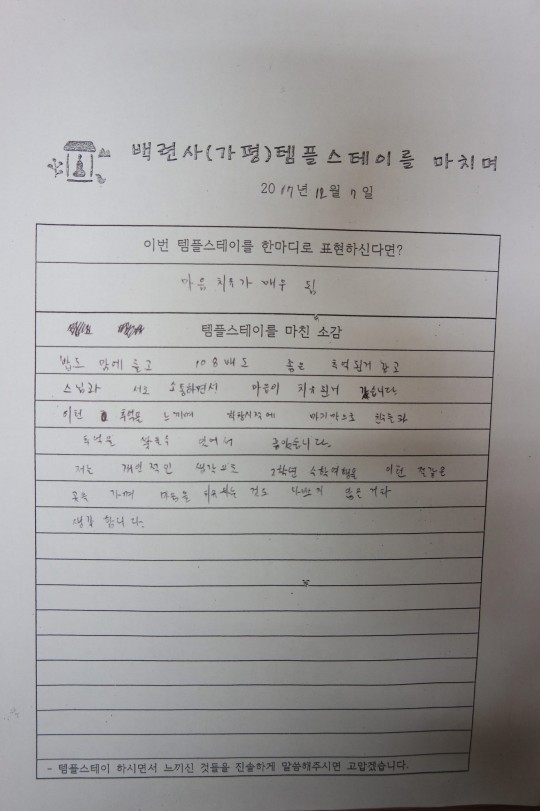 백련사(가평)템플스테이를 마치며
2017년 12월 7일
이번 템플스테이를 한마디로 표현하신다면?
마음 치유가 매우 됨
템플스테이를 마친 소감
밥도 맘에 들고 108배도 좋은 추억된거 같고
스님과 서로 소통하면서 마음이 치유된거 같습니다.
이런 추억을 느끼며 마지막으로 친구들과
추억을 만들 수 있어서 좋았습니다.
저는 개인적인 생각으로 2학년 수학여행을 이런 절같은
곳을 가며 마음을 치유하는 것도 나쁘지 않은 거다
생각 합니다.
- 템플스테이 하시면서 느끼신 것들을 진솔하게 말씀해주시면 고맙겠습니다.